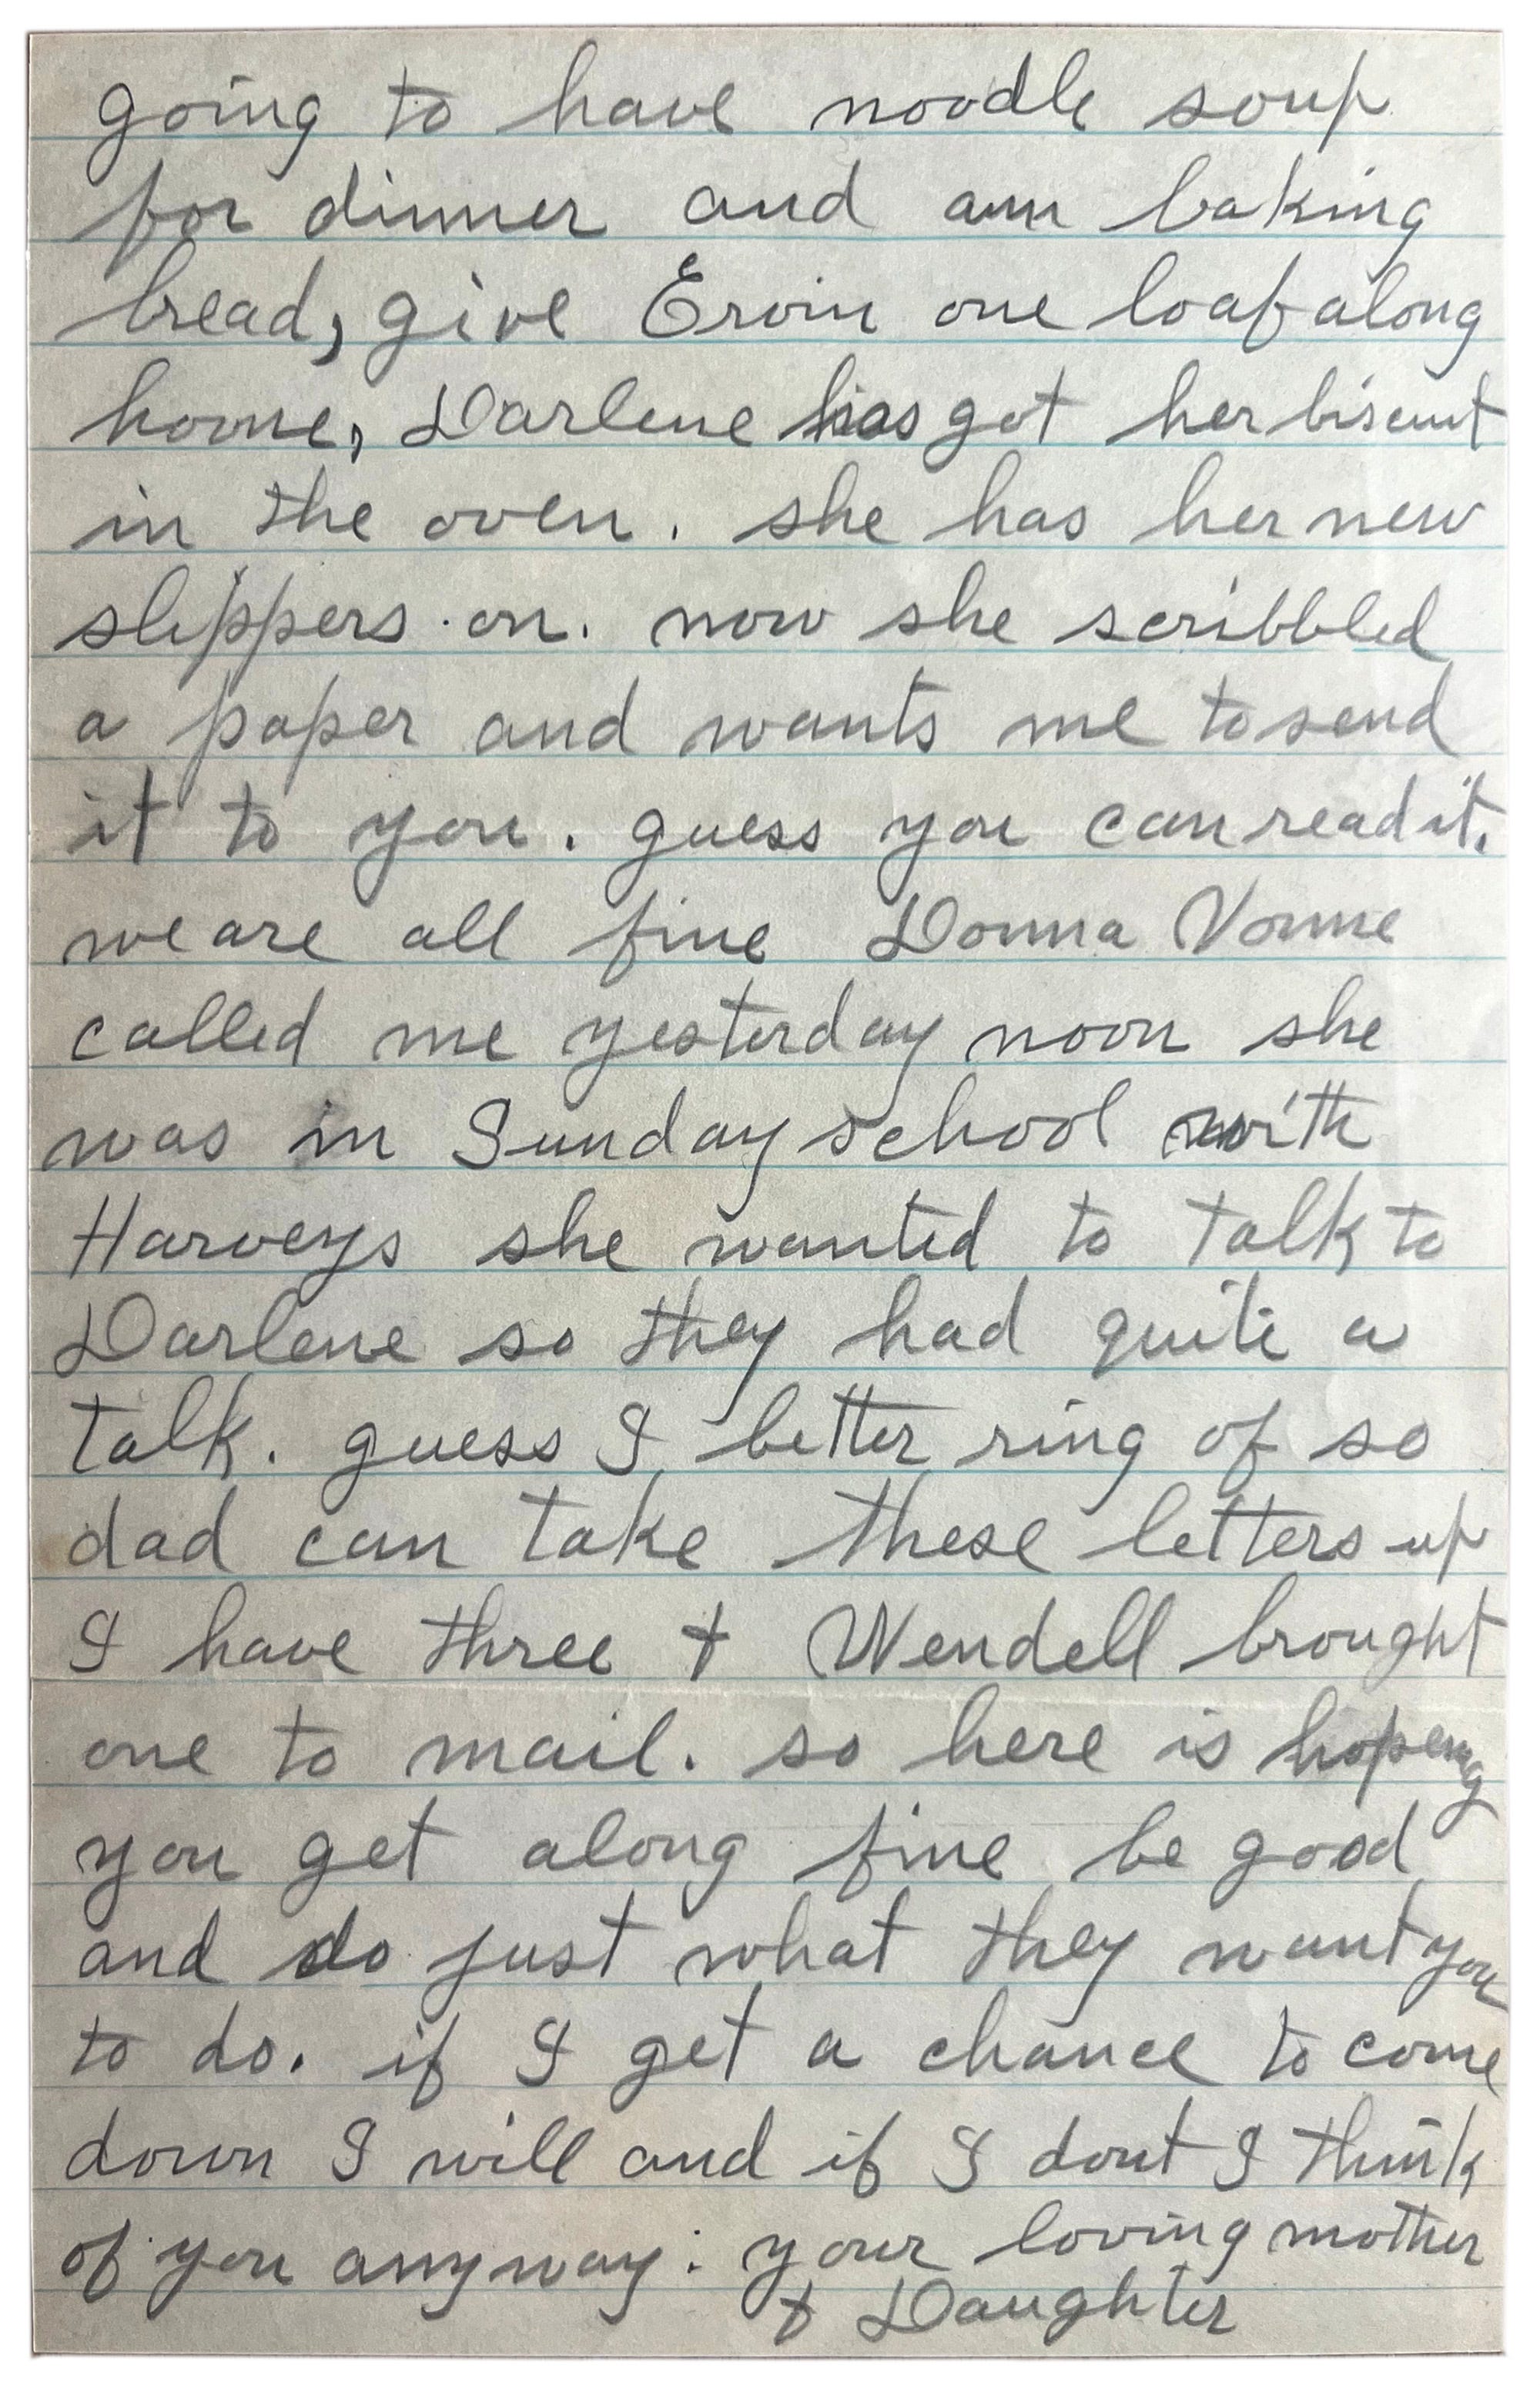 going to have noodle soup
for dinner and am baking
bread, give Ervin one loaf along
home, Darlene has got her biscuit
in the oven. she has her new
slippers on. now she scribbled
a paper and wants me to send
it to you. guess you can read it.
we are all fine Donna Vonne
called me yesterday noon she
was in Sunday school with
Harveys she wanted to talk to
Darlene so they had quite a
talk. guess I better ring of so
dad can take these letters up
I have three + Wendell brought
one to mail. so here is hopeing
you get along fine be good
and do just what they want you
to do. if I get a chance to come
down I will and if I dont I think
of you anyway. your loving mother
+ Daughter